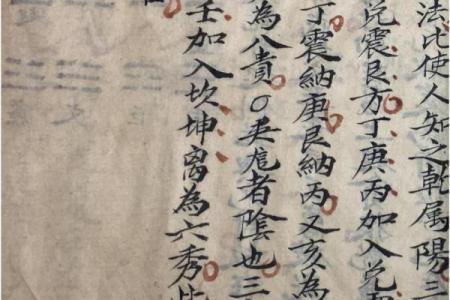 法比使人知之乾属陽三
兑震艮方丁庚丙加入兑
丁震納庚艮納丙又亥為
為八貴○巽𠩄者陰也三
壬加入坎坤离為六秀